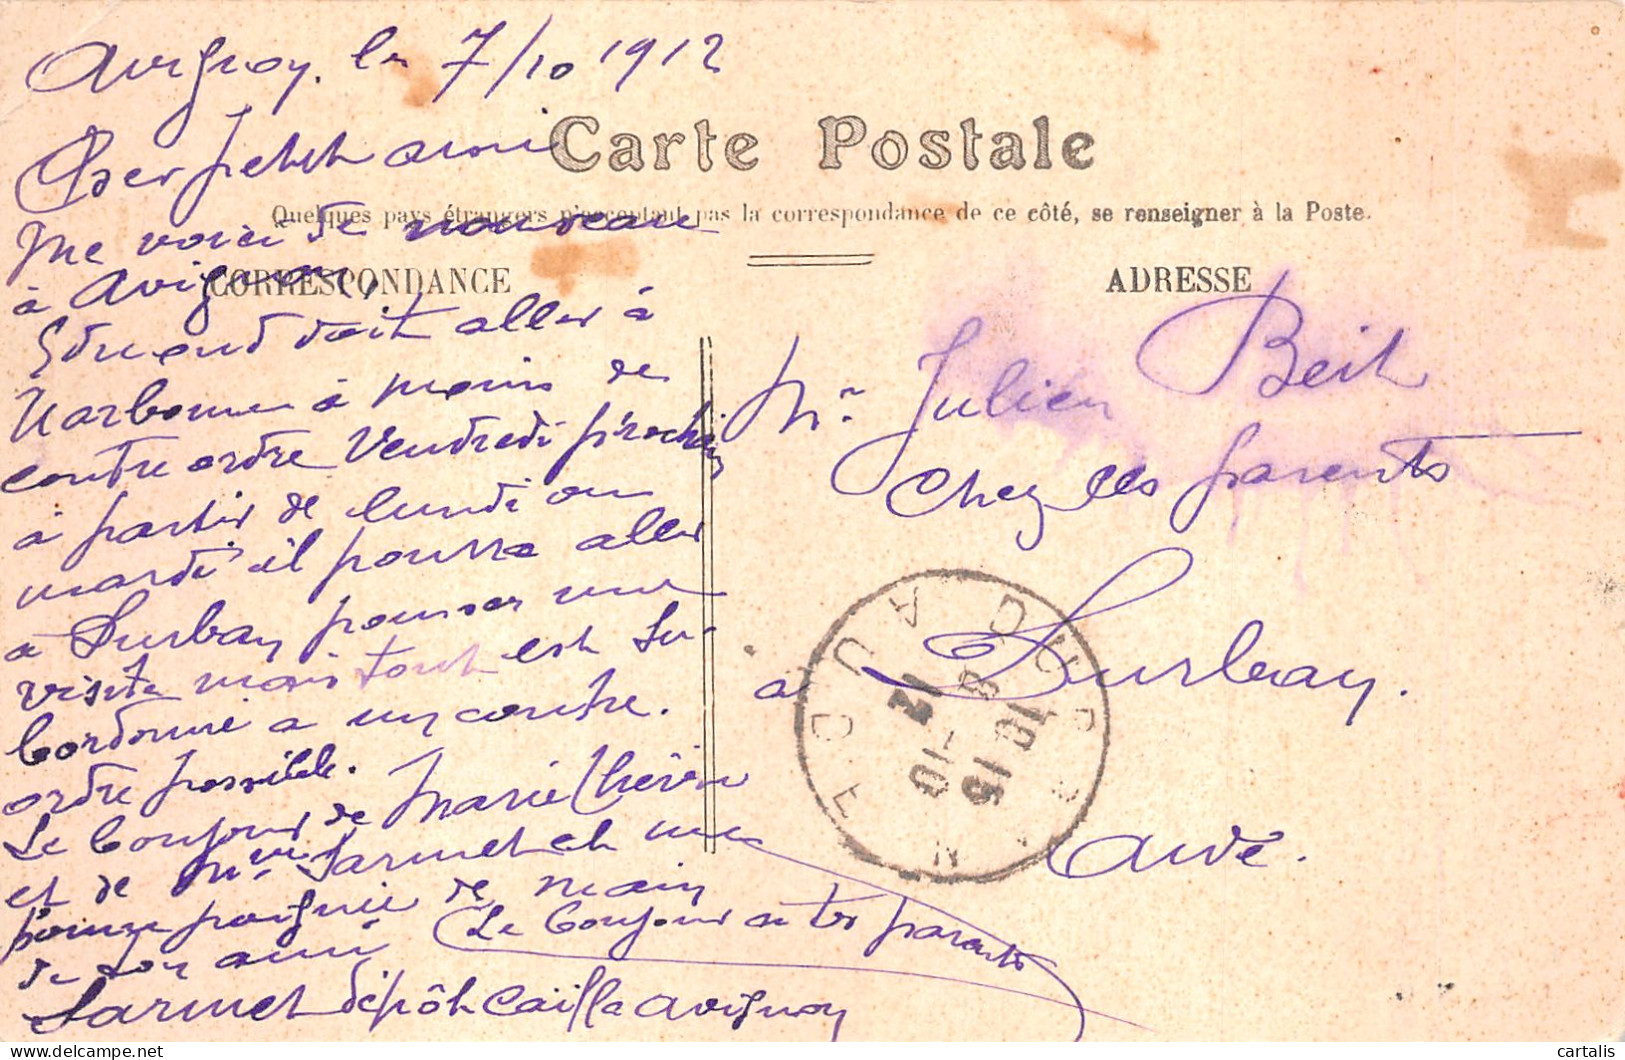 Avignon, le 7/10 1912
Carte Postale
Cher petit ami
Quelques pays étrangers n'acceptant pas la correspondance de ce côté, se renseigner à la Poste.
me voici de nouveau
à Avignon,
CORRESPONDANCE
ADRESSE
Edmond doit aller à
Narbonne à moins de
contre ordre Vendredi prochain
à partir de lundi ou
mardi il pourra aller
à Surban pousser une
visite mais tout est su-
bordonné a un contre.
ordre possible.
Le bonjour de Marie
et de Mr Sarmet et une
bonne poignée de main
de ton ami
Le bonjour a tes parents
Sarmet dépôt Avignon
Mr Julien Beil
Chez ses parents
à
Aude.
AUDE
12
-10
10 15
cartalis
delcampe.net